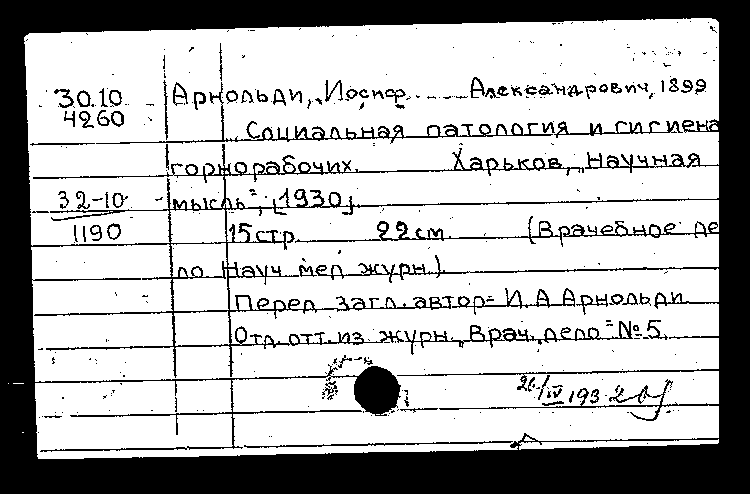 30.10 Арнольди, Иосиф Александрович, 1899
4260
Социальная патология и гигиена
горнорабочих. Харьков, „Научная
32-10 мысль", [1930].
1190 15 стр. 22 см. (Врачебное де
ло Науч мед журн.).
Перед загл. автор = И. А Арнольди
Отд. отт. из журн. „Врач. дело" № 5.
26/IV 193